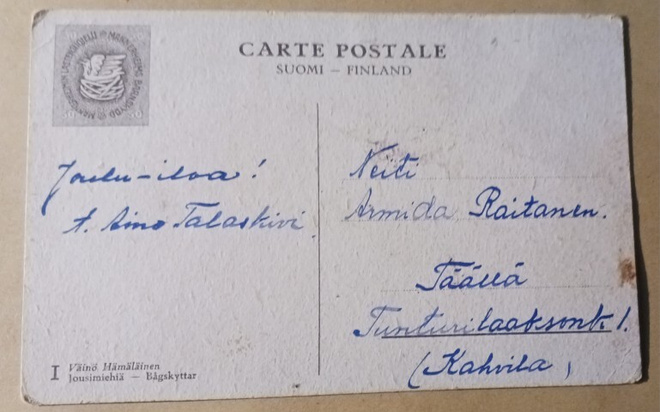 MANNERHEIMIN LASTENSUOJELULIITTO
CARTE POSTALE
SUOMI – FINLAND
Joulu-iloa!
t. Aino Talaskivi.
Neiti
Armida Raitanen.
Täällä
Tunturilaaksonk. 1.
(Kahvila)
I Väinö Hämäläinen
Jousimiehiä – Bågskyttar